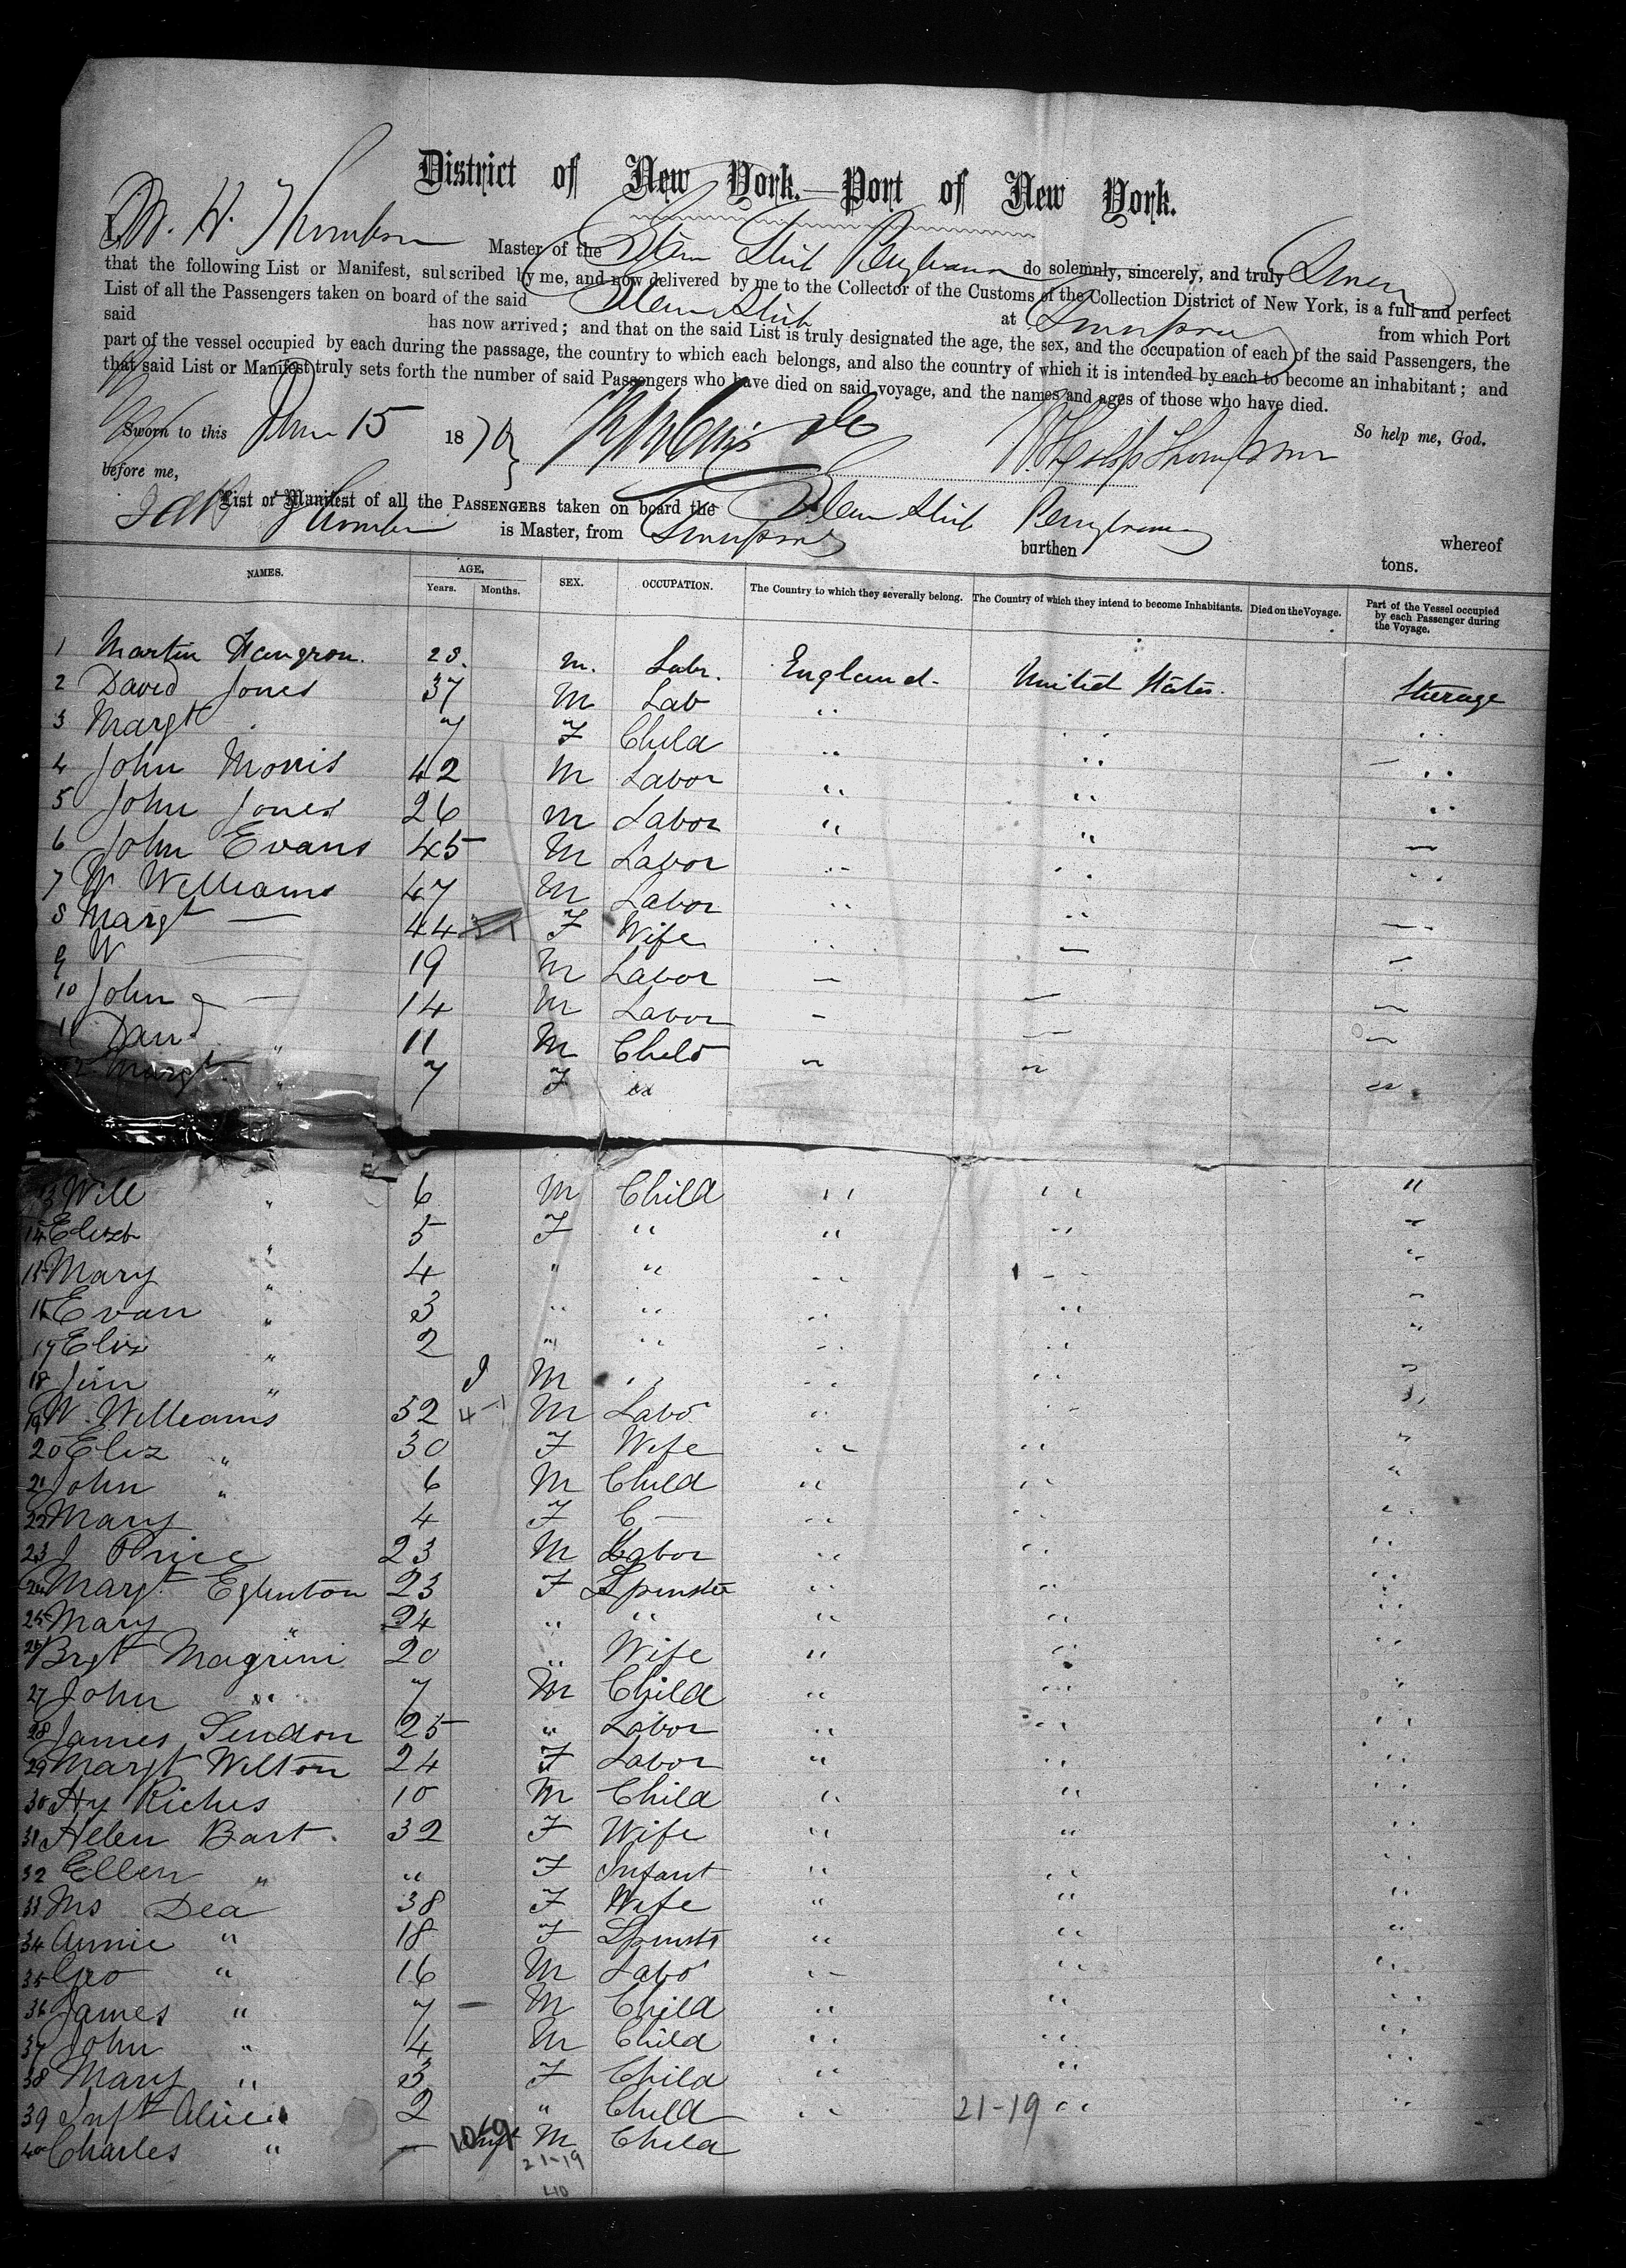 District of New York.—Port of New York.
I, W. H. Thompson Master of the Steam Ship Pennsylvania do solemnly, sincerely, and truly Swear
that the following List or Manifest, subscribed by me, and now delivered by me to the Collector of the Customs of the Collection District of New York, is a full and perfect
List of all the Passengers taken on board of the said Steam Ship at Liverpool from which Port
said has now arrived; and that on the said List is truly designated the age, the sex, and the occupation of each of the said Passengers, the
part of the vessel occupied by each during the passage, the country to which each belongs, and also the country of which it is intended by each to become an inhabitant; and
that said List or Manifest truly sets forth the number of said Passengers who have died on said voyage, and the names and ages of those who have died.
So help me, God.
Sworn to this June 15 1870
before me,
List or Manifest of all the PASSENGERS taken on board the Steam Ship Pennsylvania whereof
Thompson is Master, from Liverpool burthen tons.
NAMES. AGE. SEX. OCCUPATION. The Country to which they severally belong. The Country of which they intend to become Inhabitants. Died on the Voyage. Part of the Vessel occupied by each Passenger during the Voyage.
Years. Months.
1 Martin 28. M. Labr. England. United States. Steerage
2 David Jones 37 M Lab " " "
3 Margt 7 F Child " " "
4 John Morris 42 M Labor " " "
5 John Jones 26 M Labor " " "
6 John Evans 45 M Labor " " "
7 W Williams 47 M Labor " " "
8 Margt — 44 F Wife " — —
9 W — 19 M Labor — — —
10 John — 14 M Labor — — —
11 David " 11 M Child " " "
12 Margt " 7 F " " " "
13 Will " 6 M Child " " "
14 Elizb " 5 F " " " "
15 Mary " 4 " " " " "
16 Evan " 3 " " " " "
17 Eliz " 2 " " " " "
18 Jim " M " " " "
19 W. Williams 32 M Labo " " "
20 Eliz " 30 F Wife " " "
21 John " 6 M Child " " "
22 Mary " 4 F C— " " "
23 J Price 23 M Labor " " "
24 Margt Eglinton 23 F Spinster " " "
25 Mary " 24 " " " " "
26 Brgt Magrini 20 " Wife " " "
27 John " 7 M Child " " "
28 James Sendon 25 " Labor " " "
29 Margt Wilton 24 F Labor " " "
30 Hy Riches 10 M Child " " "
31 Helen Bart. 32 F Wife " " "
32 Ellen " " F Infant " " "
33 Mrs Dea 38 F Wife " " "
34 Annie " 18 F Spinsts " " "
35 Geo " 16 M Labo " " "
36 James " 7 — M Child " " "
37 John " 4 M Child " " "
38 Mary " 3 F Child " " "
39 Inft Alice 2 " Child " 21-19 " "
40 Charles " — M Child
21-19
40